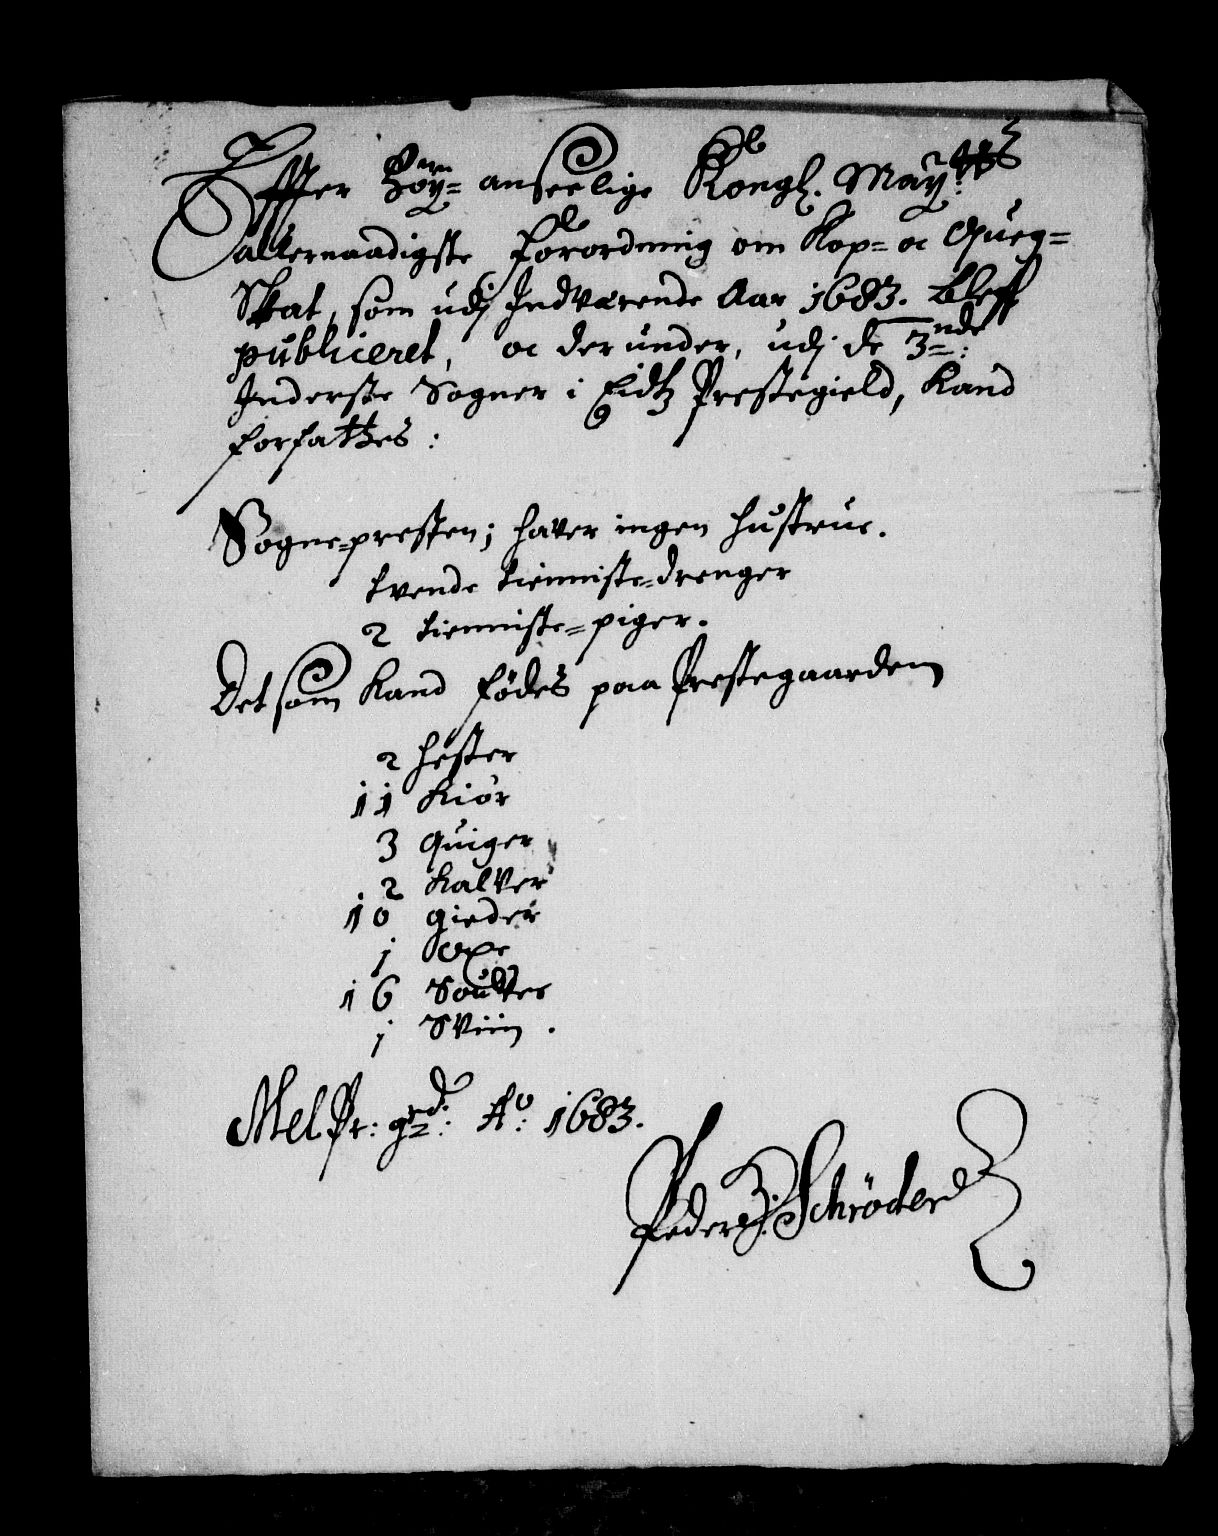 Effter Höy= anseelige Kongl. May:ttz
allernaadigste forordning om Kop= oc Queg=
Skat, som udj Indværende Aar 1683. bleff
publiceret, oc der under, udj de 3=nde:
Inderste Sogner i Eidtz Prestegield, Kand
forfattes:
Sogne=presten; hafver ingen hustrue.
tvende tienniste=drenger
2 tienniste=piger.
Det som Kand födes paa Prestegaarden
2 hester
11 Kiör
3 Quiger
2 Kalfver
10 gieder
1 Oxe
16 Soufver
1 Sviin.
Mel Pr: g=rd: Ao: 1683.
Peder Schröder